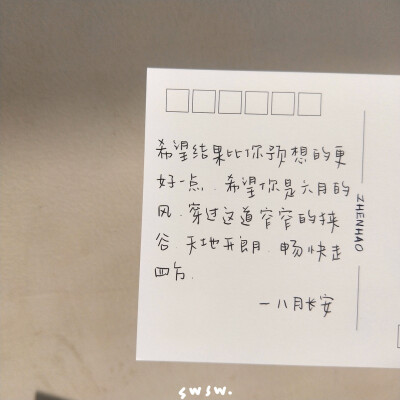 希望结果比你预想的更
好一点.希望你是六月的
风.穿过这道窄窄的挟
谷.天地开朗.畅快走
四方.
一八月长安
ZHENHAO
swsw.